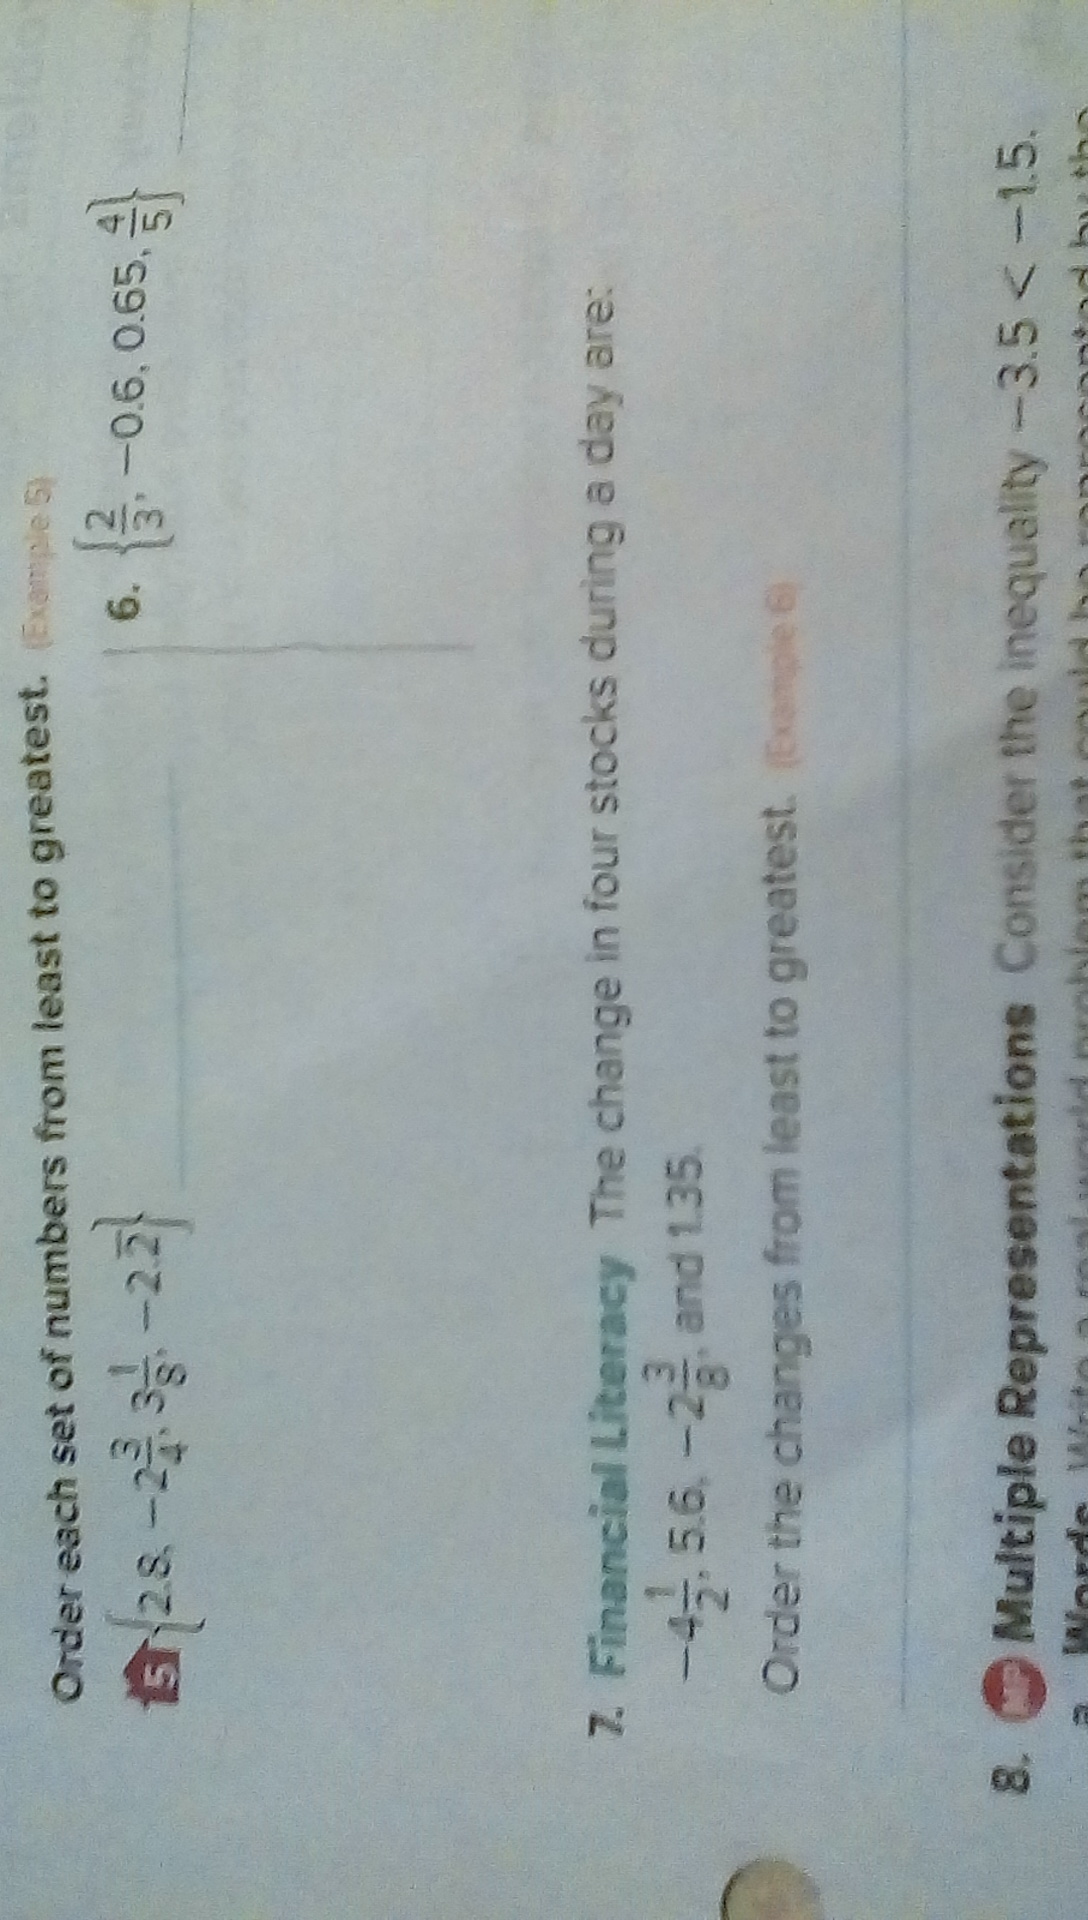 Order each set of numbers from least to greatest. (Example 5)
5 {2.8, −2 3/4, 3 1/8, −2.2̅}
6. {2/3, −0.6, 0.65, 4/5}
7. Financial Literacy The change in four stocks during a day are:
−4 1/2, 5.6, −2 3/8, and 1.35.
Order the changes from least to greatest. (Example 6)
8. MP Multiple Representations Consider the inequality −3.5 < −1.5.
a. Words Write a real-world problem that could be represented by the